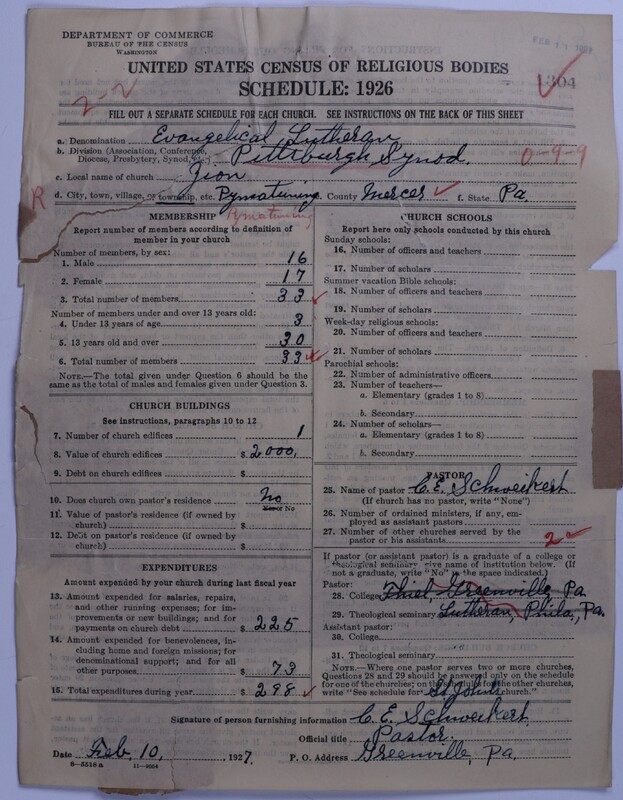 DEPARTMENT OF COMMERCE
BUREAU OF THE CENSUS
WASHINGTON
UNITED STATES CENSUS OF RELIGIOUS BODIES
SCHEDULE: 1926
1304
2-2
FILL OUT A SEPARATE SCHEDULE FOR EACH CHURCH. SEE INSTRUCTIONS ON THE BACK OF THIS SHEET
a. Denomination Evangelical Lutheran
b. Division (Association, Conference, Diocese, Presbytery, Synod, etc.) Pittsburgh Synod. 0-9-9
c. Local name of church Zion
R
d. City, town, village, or township, etc. Pymatuning e. County Mercer f. State Pa.
Pymatuning
MEMBERSHIP
Report number of members according to definition of
member in your church
Number of members, by sex:
1. Male 16
2. Female 17
3. Total number of members 33
Number of members under and over 13 years old:
4. Under 13 years of age 3
5. 13 years old and over 30
6. Total number of members 33
NOTE.—The total given under Question 6 should be
the same as the total of males and females given under Question 3.
CHURCH BUILDINGS
See instructions, paragraphs 10 to 12
7. Number of church edifices 1
8. Value of church edifices $ 2000.
9. Debt on church edifices $
10. Does church own pastor's residence No
Yes or No
11. Value of pastor's residence (if owned by
church) $
12. Debt on pastor's residence (if owned by
church) $
EXPENDITURES
Amount expended by your church during last fiscal year
13. Amount expended for salaries, repairs,
and other running expenses; for im-
provements or new buildings; and for
payments on church debt $ 225
14. Amount expended for benevolences, in-
cluding home and foreign missions; for
denominational support; and for all
other purposes $ 73
15. Total expenditures during year $ 298
CHURCH SCHOOLS
Report here only schools conducted by this church
Sunday schools:
16. Number of officers and teachers
17. Number of scholars
Summer vacation Bible schools:
18. Number of officers and teachers
19. Number of scholars
Week-day religious schools:
20. Number of officers and teachers
21. Number of scholars
Parochial schools:
22. Number of administrative officers
23. Number of teachers—
a. Elementary (grades 1 to 8)
b. Secondary
24. Number of scholars—
a. Elementary (grades 1 to 8)
b. Secondary
PASTOR
25. Name of pastor C. E. Schweikert
(If church has no pastor, write "None")
26. Number of ordained ministers, if any, em-
ployed as assistant pastors
27. Number of other churches served by the
pastor or his assistants 2
If pastor (or assistant pastor) is a graduate of a college or
theological seminary, give name of institution below. (If
not a graduate, write "No" in the space indicated.)
Pastor:
28. College Thiel, Greenville, Pa.
29. Theological seminary Lutheran, Phila., Pa.
Assistant pastor:
30. College
31. Theological seminary
NOTE.—Where one pastor serves two or more churches,
Questions 28 and 29 should be answered only on the schedule
for one of the churches; on the schedules for the other churches,
write "See schedule for St. John's church."
Signature of person furnishing information C. E. Schweikert
Official title Pastor.
Date Feb. 10, 1927. P. O. Address Greenville, Pa.
8-5518 a